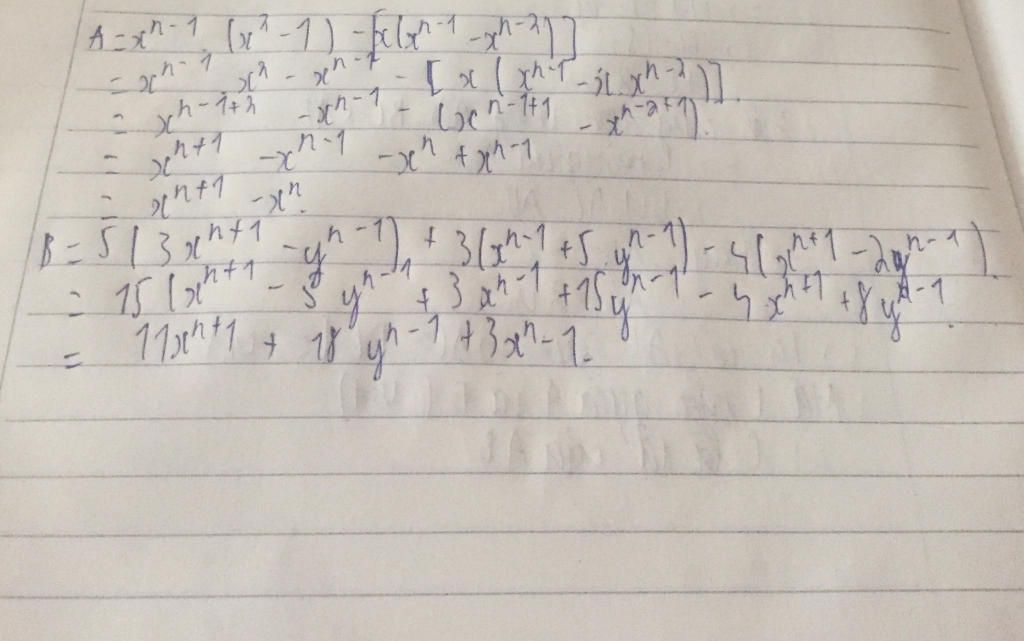 A = xⁿ⁻¹. (x² - 1) - [x(xⁿ⁻¹ - xⁿ⁻²)]
= xⁿ⁻¹. x² - xⁿ⁻¹ - [x(xⁿ⁻¹ - x. xⁿ⁻²)].
= xⁿ⁻¹⁺² - xⁿ⁻¹ - (xⁿ⁻¹⁺¹ - xⁿ⁻²⁺¹).
= xⁿ⁺¹ - xⁿ⁻¹ - xⁿ + xⁿ⁻¹
= xⁿ⁺¹ - xⁿ.
B = 5(3xⁿ⁺¹ - yⁿ⁻¹) + 3(xⁿ⁻¹ + 5.yⁿ⁻¹) - 4(xⁿ⁺¹ - 2yⁿ⁻¹).
= 15(xⁿ⁺¹ - 5yⁿ⁻¹ + 3xⁿ⁻¹ + 15yⁿ⁻¹ - 4xⁿ⁺¹ + 8yⁿ⁻¹.
= 11xⁿ⁺¹ + 18yⁿ⁻¹ + 3xⁿ - 1.